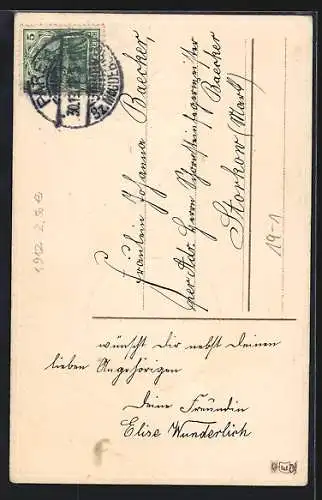 5
30.12.
Fräulein Johanna Baecker,
per Adr. Herrn Schornsteinfegermeister
Baecker
Storkow (Mark)
19-1
1912
wünscht dir nebst deinen
lieben Angehörigen
Deine Freundin
Elise Wunderlich